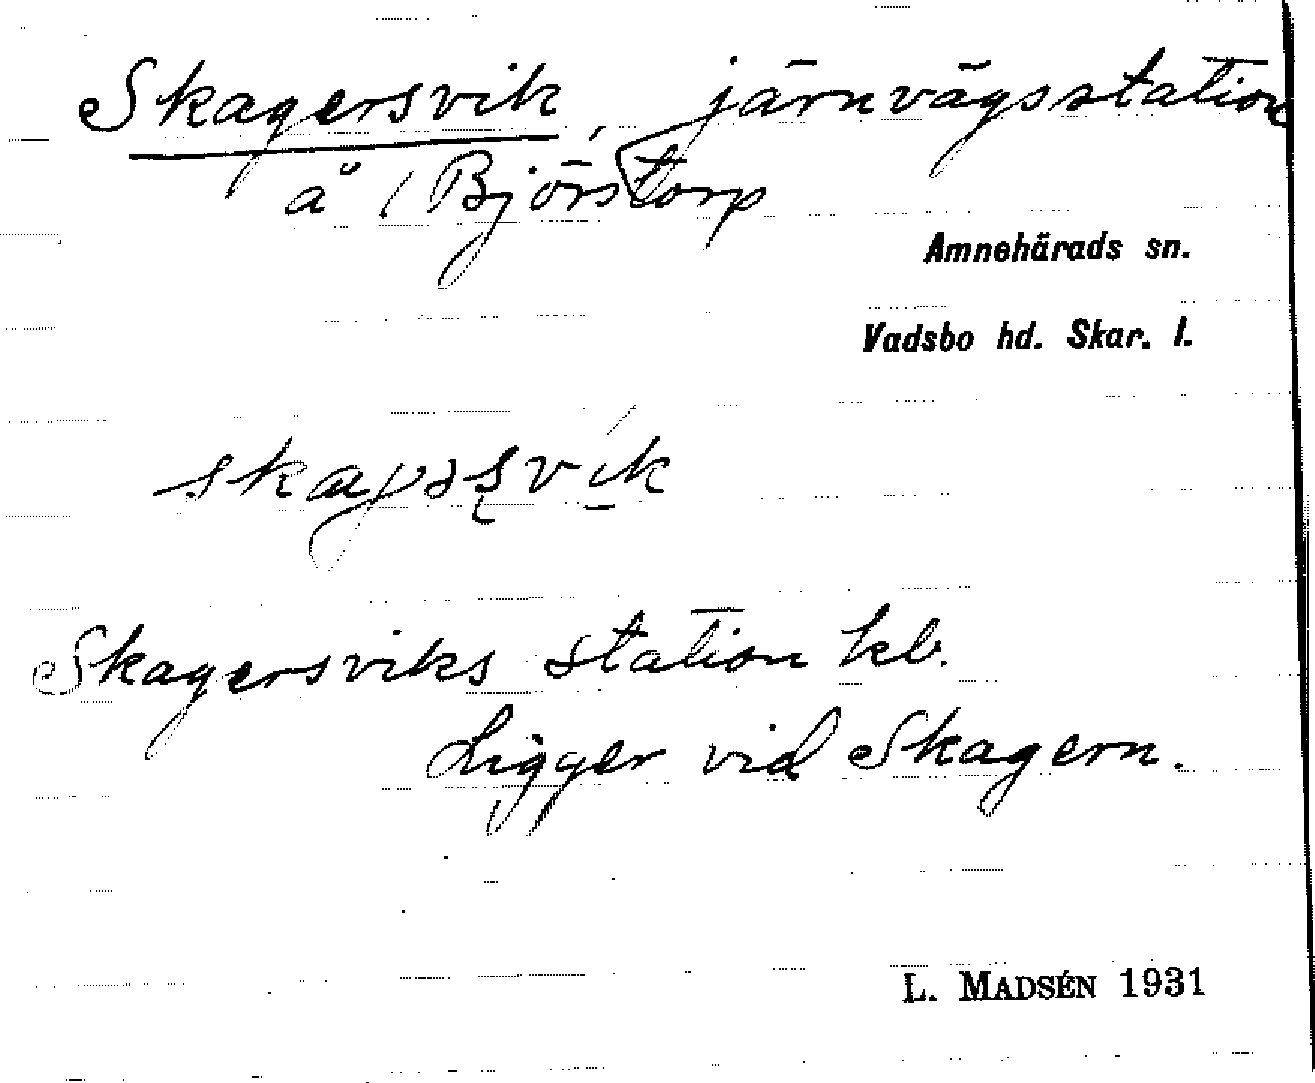 Skagersvik, järnvägsstation
å 1 Björstorp
Amnehärads sn.
Vadsbo hd. Skar. l.
Skagersviks station kb.
Ligger vid Skagern.
L. MADSÉN 1931